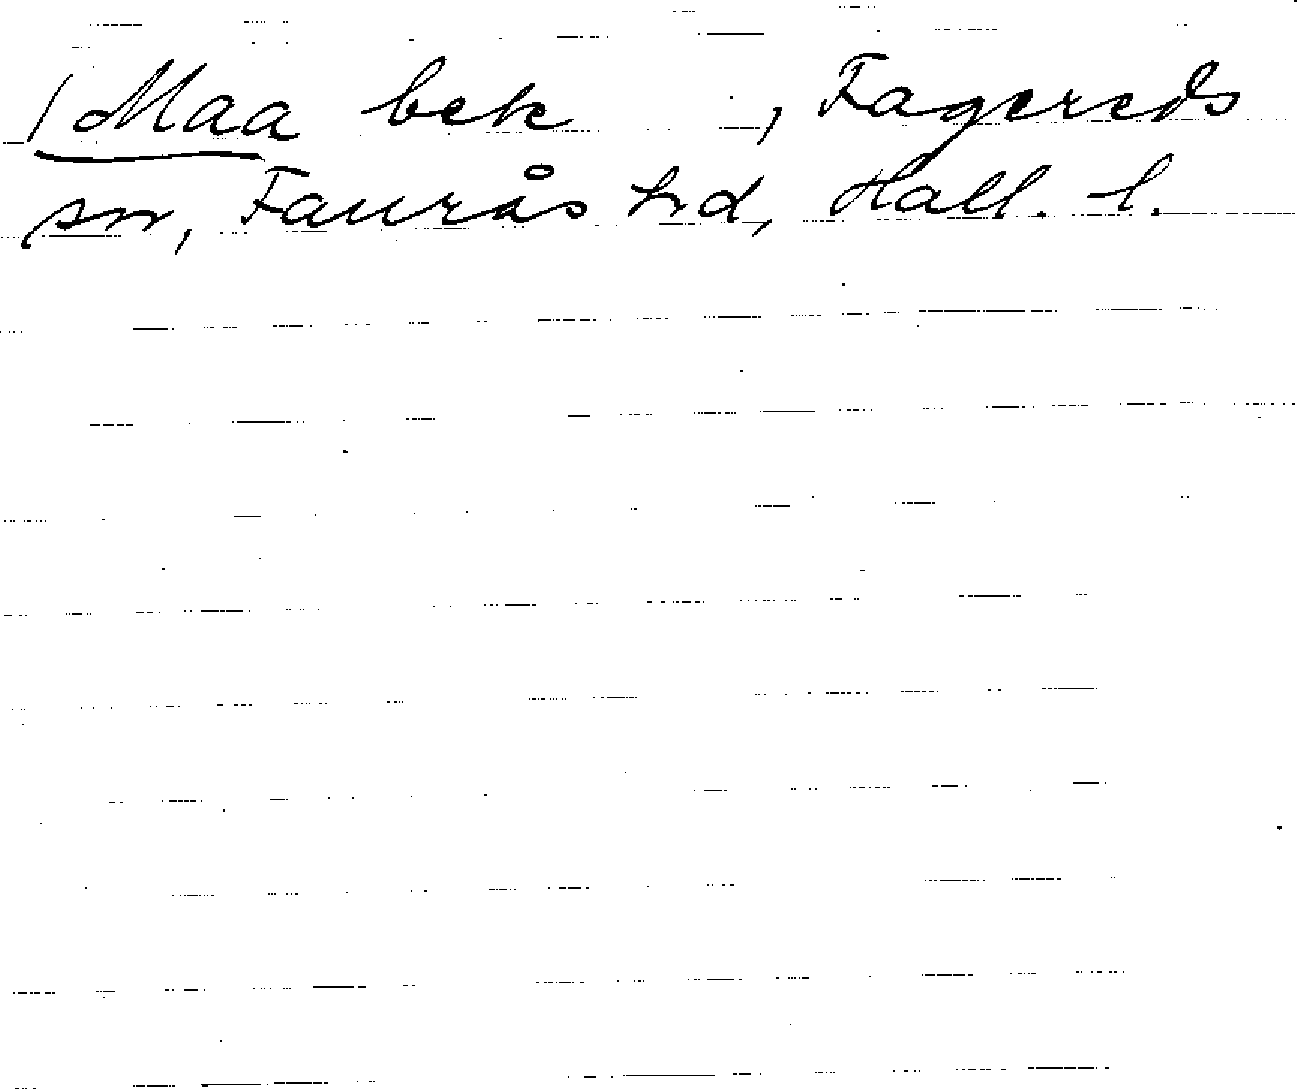 /Maa bek , Fagereds
sn, Faurås hd, Hall. l.